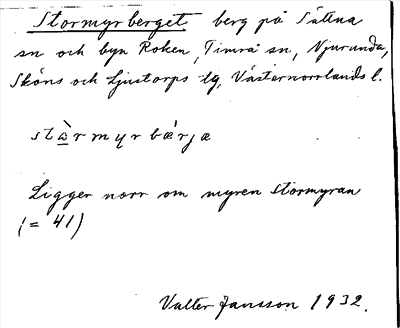 Stormyrberget berg på Sättna
sn och byn Roken, Timrå sn, Njurunda,
Sköns och Ljustorps tg, Västernorrlands l.
stòrmyrbær̀jæ
Ligger norr om myren Stormyran
(= 41)
Valter Jansson 1932.